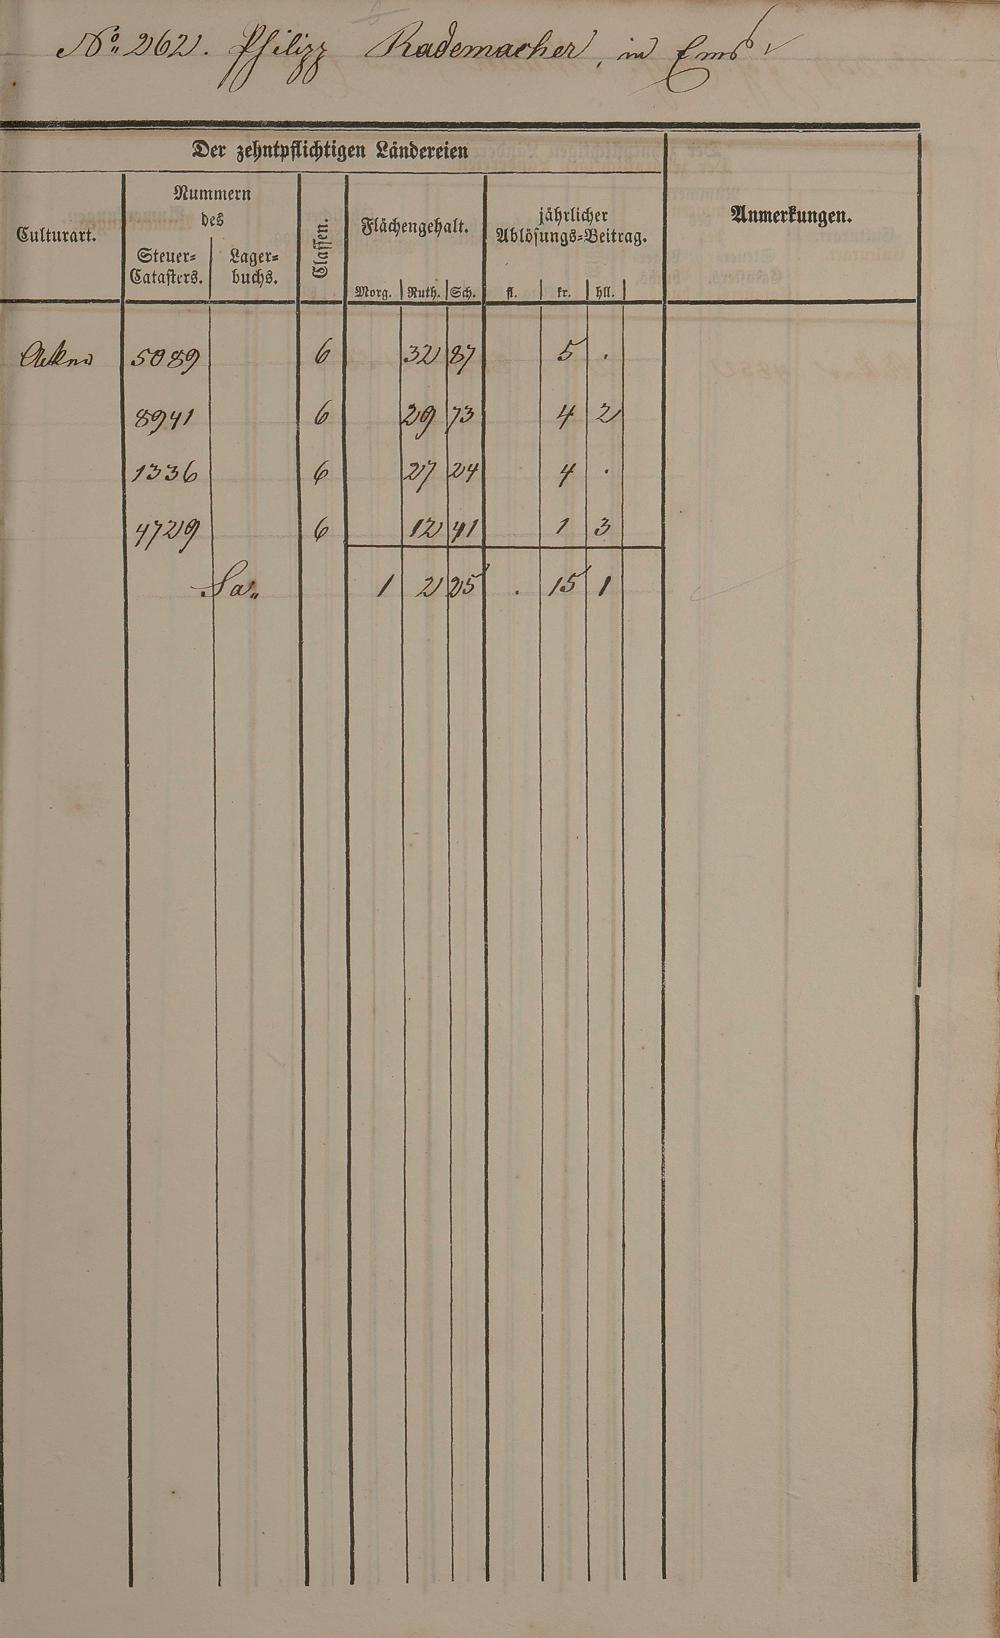 No. 262. Philipp Rademacher, in Ems
Der zehntpflichtigen Ländereien
Culturart.
Nummern
des
Steuer-
Catasters.
Lager-
buchs.
Classen.
Flächengehalt.
Morg. Ruth. Sch.
jährlicher
Ablösungs-Beitrag.
fl. kr. hll.
Anmerkungen.
5089 6 32 87 5 .
8941 6 29 73 4 2
1336 6 27 24 4 .
4729 6 12 41 1 3
Sa. 1 2 25 . 15 1